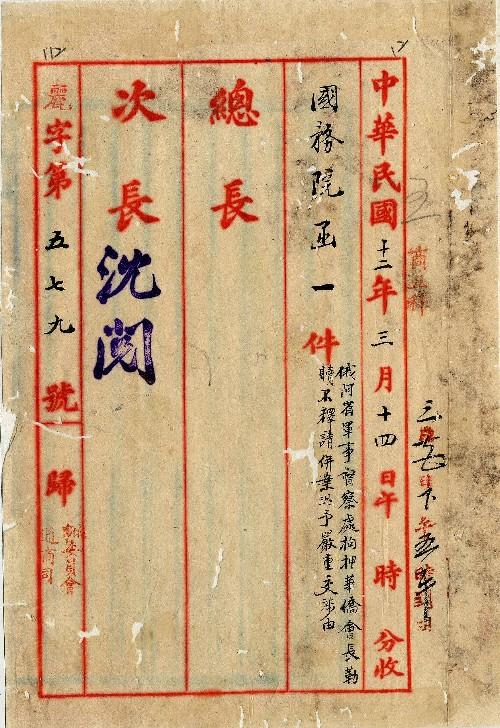 中華民國十二年三月十四日午 時 分收
國務院函一件
俄阿省軍事督察處拘押華僑會長勒
贖不釋請併案從予嚴重交涉由
總長
次長 沈閱
字第五七九號 歸
委員會
通商司